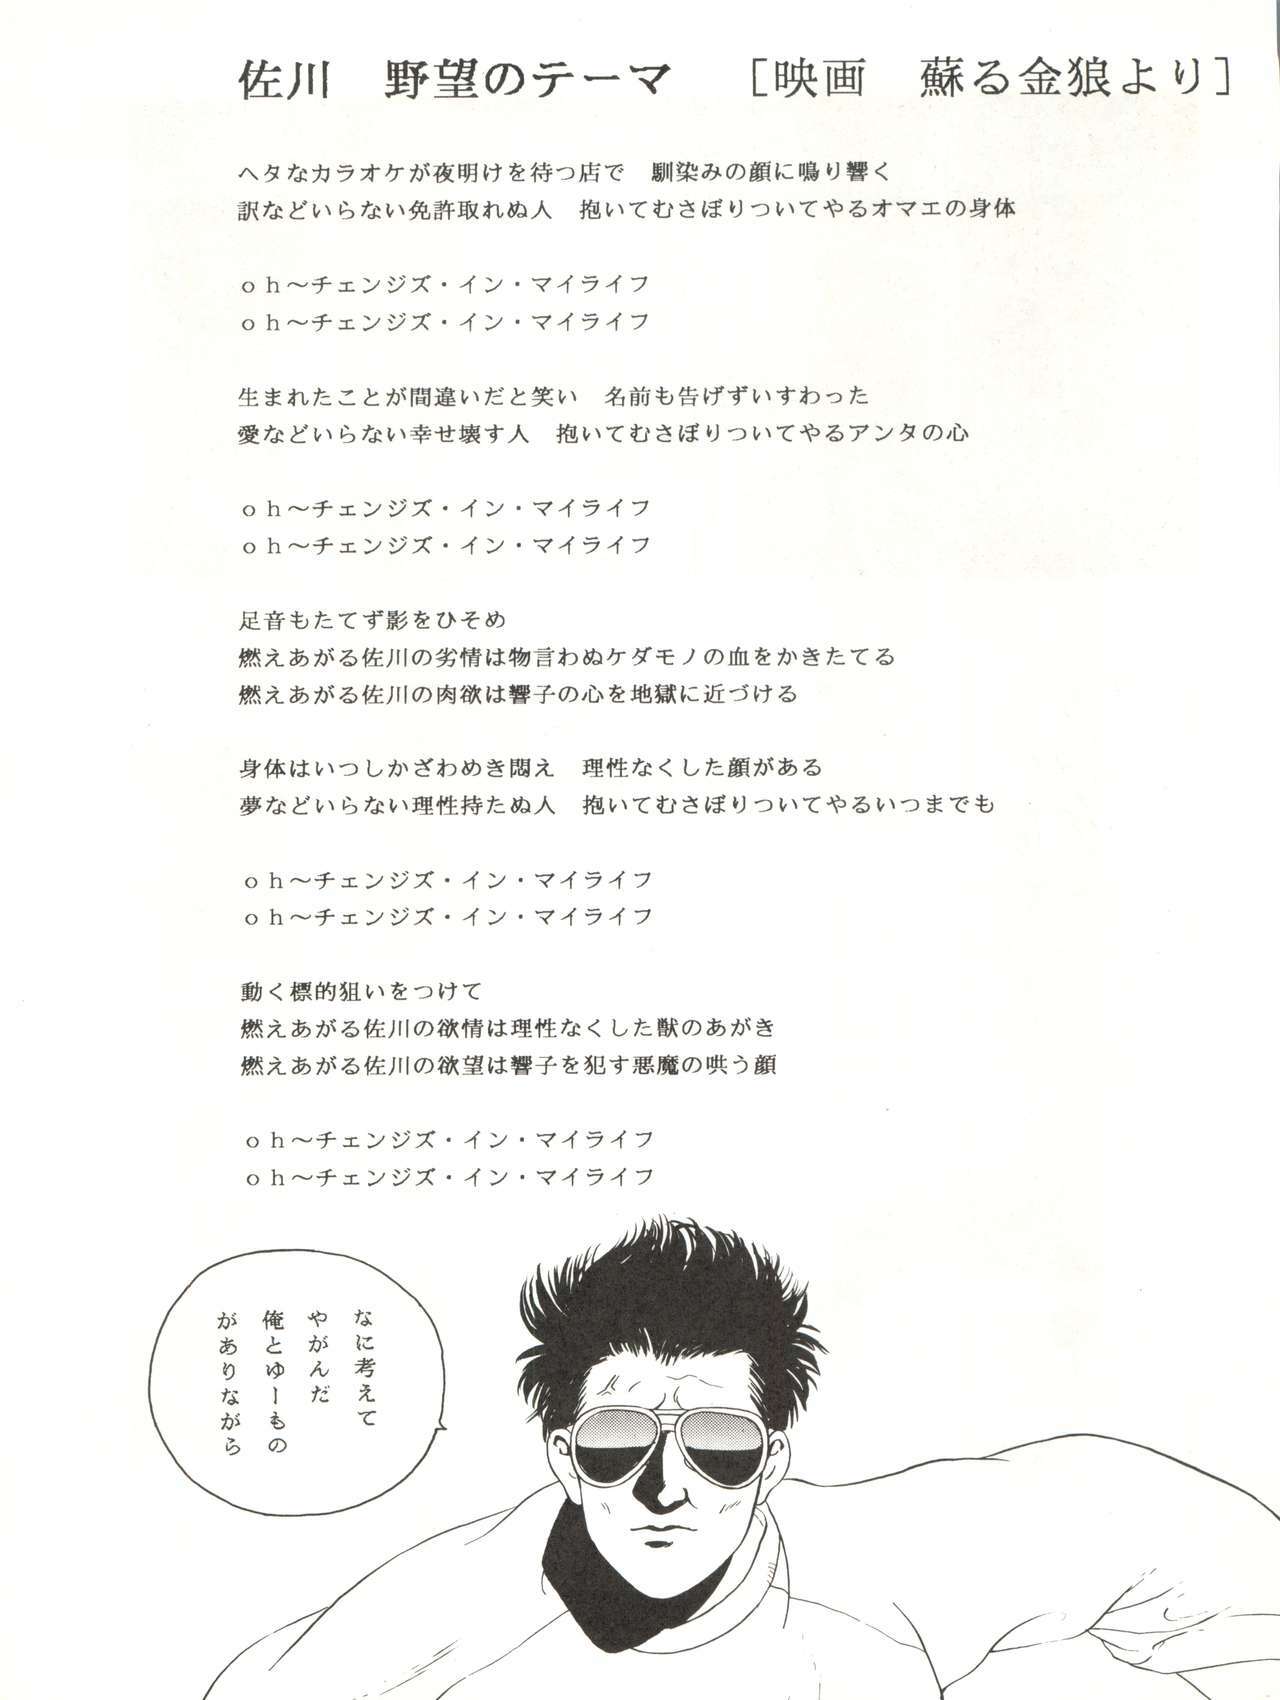 佐川　野望のテーマ　［映画　蘇る金狼より］
ヘタなカラオケが夜明けを待つ店で　馴染みの顔に鳴り響く
訳などいらない免許取れぬ人　抱いてむさぼりついてやるオマエの身体
ｏｈ～チェンジズ・イン・マイライフ
ｏｈ～チェンジズ・イン・マイライフ
生まれたことが間違いだと笑い　名前も告げずいすわった
愛などいらない幸せ壊す人　抱いてむさぼりついてやるアンタの心
ｏｈ～チェンジズ・イン・マイライフ
ｏｈ～チェンジズ・イン・マイライフ
足音もたてず影をひそめ
燃えあがる佐川の劣情は物言わぬケダモノの血をかきたてる
燃えあがる佐川の肉欲は響子の心を地獄に近づける
身体はいつしかざわめき悶え　理性なくした顔がある
夢などいらない理性持たぬ人　抱いてむさぼりついてやるいつまでも
ｏｈ～チェンジズ・イン・マイライフ
ｏｈ～チェンジズ・イン・マイライフ
動く標的狙いをつけて
燃えあがる佐川の欲情は理性なくした獣のあがき
燃えあがる佐川の欲望は響子を犯す悪魔の哄う顔
ｏｈ～チェンジズ・イン・マイライフ
ｏｈ～チェンジズ・イン・マイライフ
なに考えて
やがんだ
俺とゆーもの
がありながら